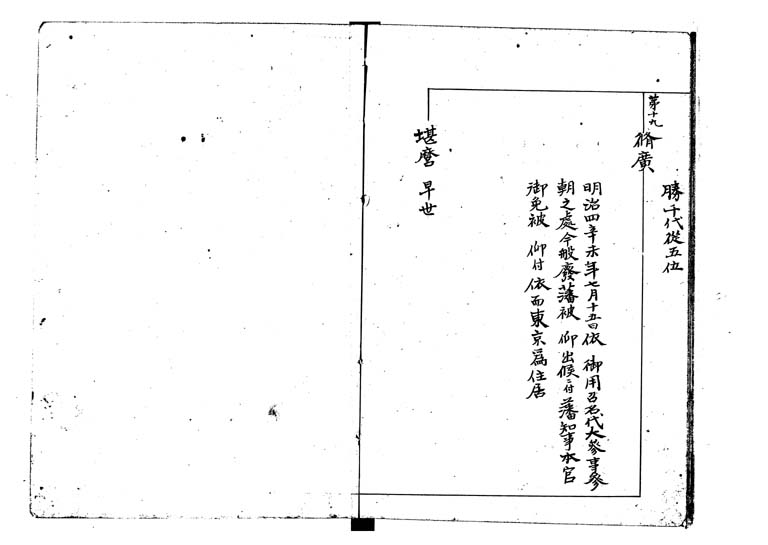 勝千代従五位
第十九
脩廣
明治四辛未年七月十五日依 御用召名代大參事參
朝之處今般廢藩被 仰出候ニ付藩知事本官
御免被 仰付依而東京爲住居
堪麿 早世